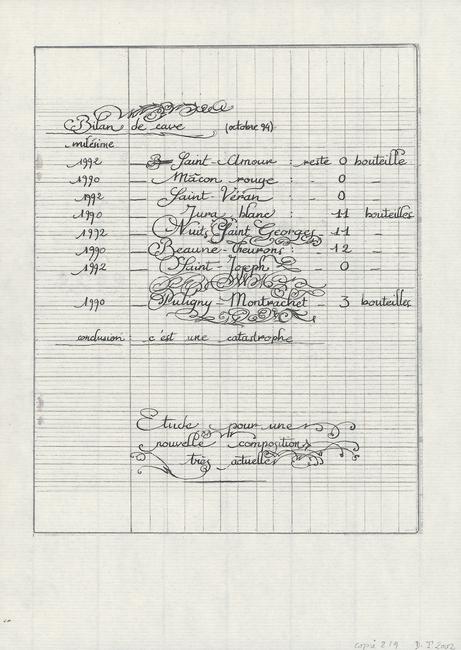 Bilan de cave (octobre 94)
milésime
1992 — Saint-Amour : reste 0 bouteille
1990 — Mâcon rouge : - 0 -
1992 — Saint-Véran : - 0
1990 — Jura blanc : - 11 bouteilles
1992 — Nuits Saint Georges - 11 -
1990 — Beaune-Theurons : - 12 -
1992 — Saint-Joseph - 0 -
1990 — Puligny-Montrachet - 3 bouteilles
conclusion : c'est une catastrophe
Etude pour une
nouvelle composition
très actuelle
copie 2/9 D. T 2002